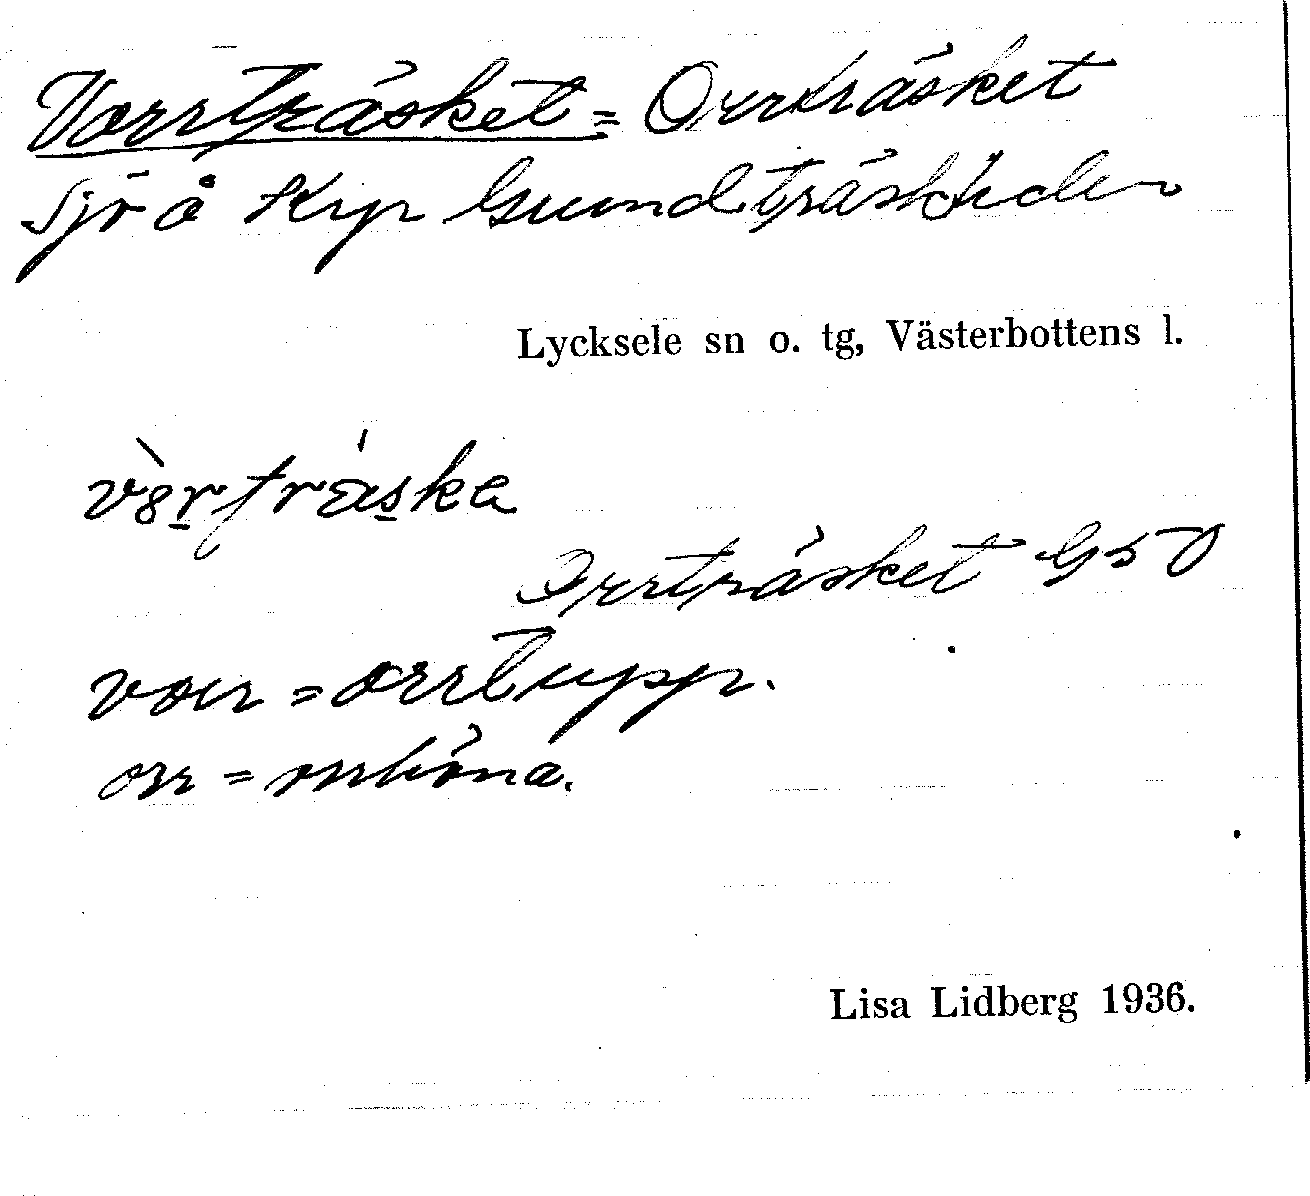 Vorrträsket = Orrträsket
sjö å Krp Gundträskliden
Lycksele sn o. tg, Västerbottens l.
Orrträsket G50
vorr = orrtupp.
orr = orrhöna.
Lisa Lidberg 1936.